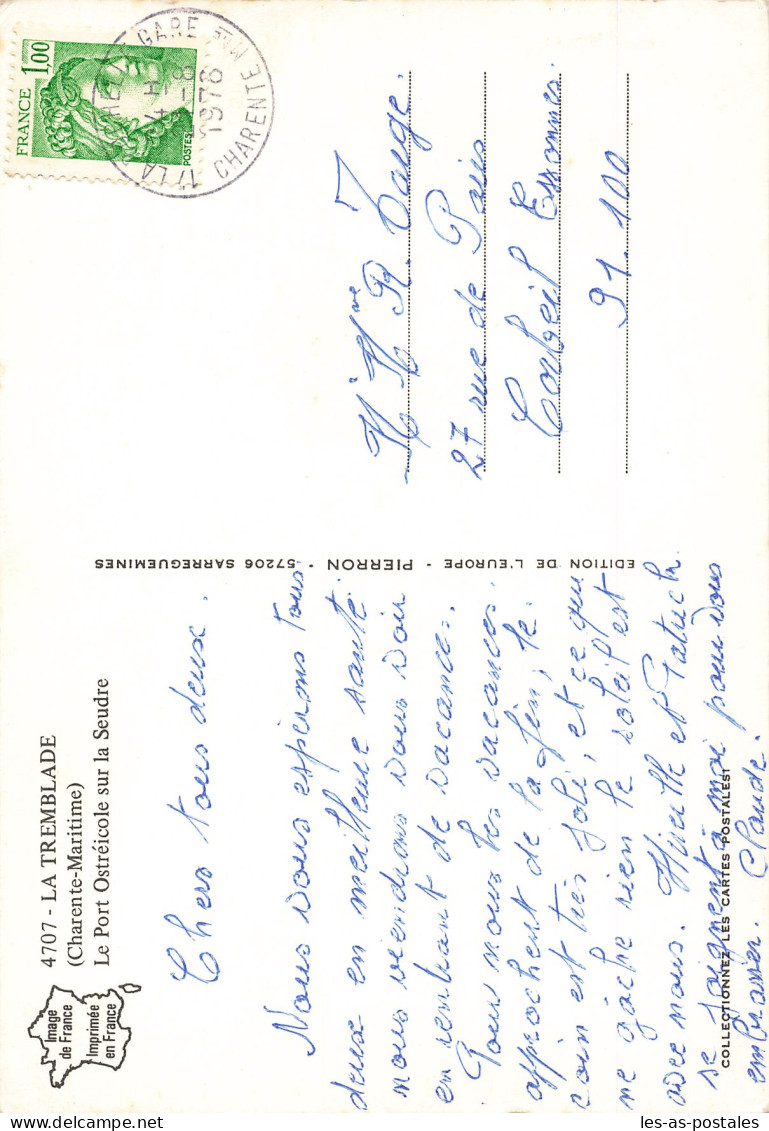 Image
de France
Imprimée
en France
4707 - LA TREMBLADE
(Charente-Maritime)
Le Port Ostréicole sur la Seudre
Chers tous deux.
Nous vous espérons tous
deux en meilleure santé
nous viendrons vous voir
en rentrant de vacances.
Pour nous les vacances
approchent de la fin, le
coin est très joli, et ce qui
ne gâche rien le soleil est
avec nous. et Patrick
se joignent à moi pour vous
embrasser. Claude.
COLLECTIONNEZ LES CARTES POSTALES!
EDITION DE L'EUROPE - PIERRON - 57206 SARREGUEMINES
FRANCE 1,00
POSTES
17 LA GARE
CHARENTE Mme
-8
1978
Mr Mme R.
27 rue de Paris
Corbeil Essonnes.
91.100
les-as-postales.com